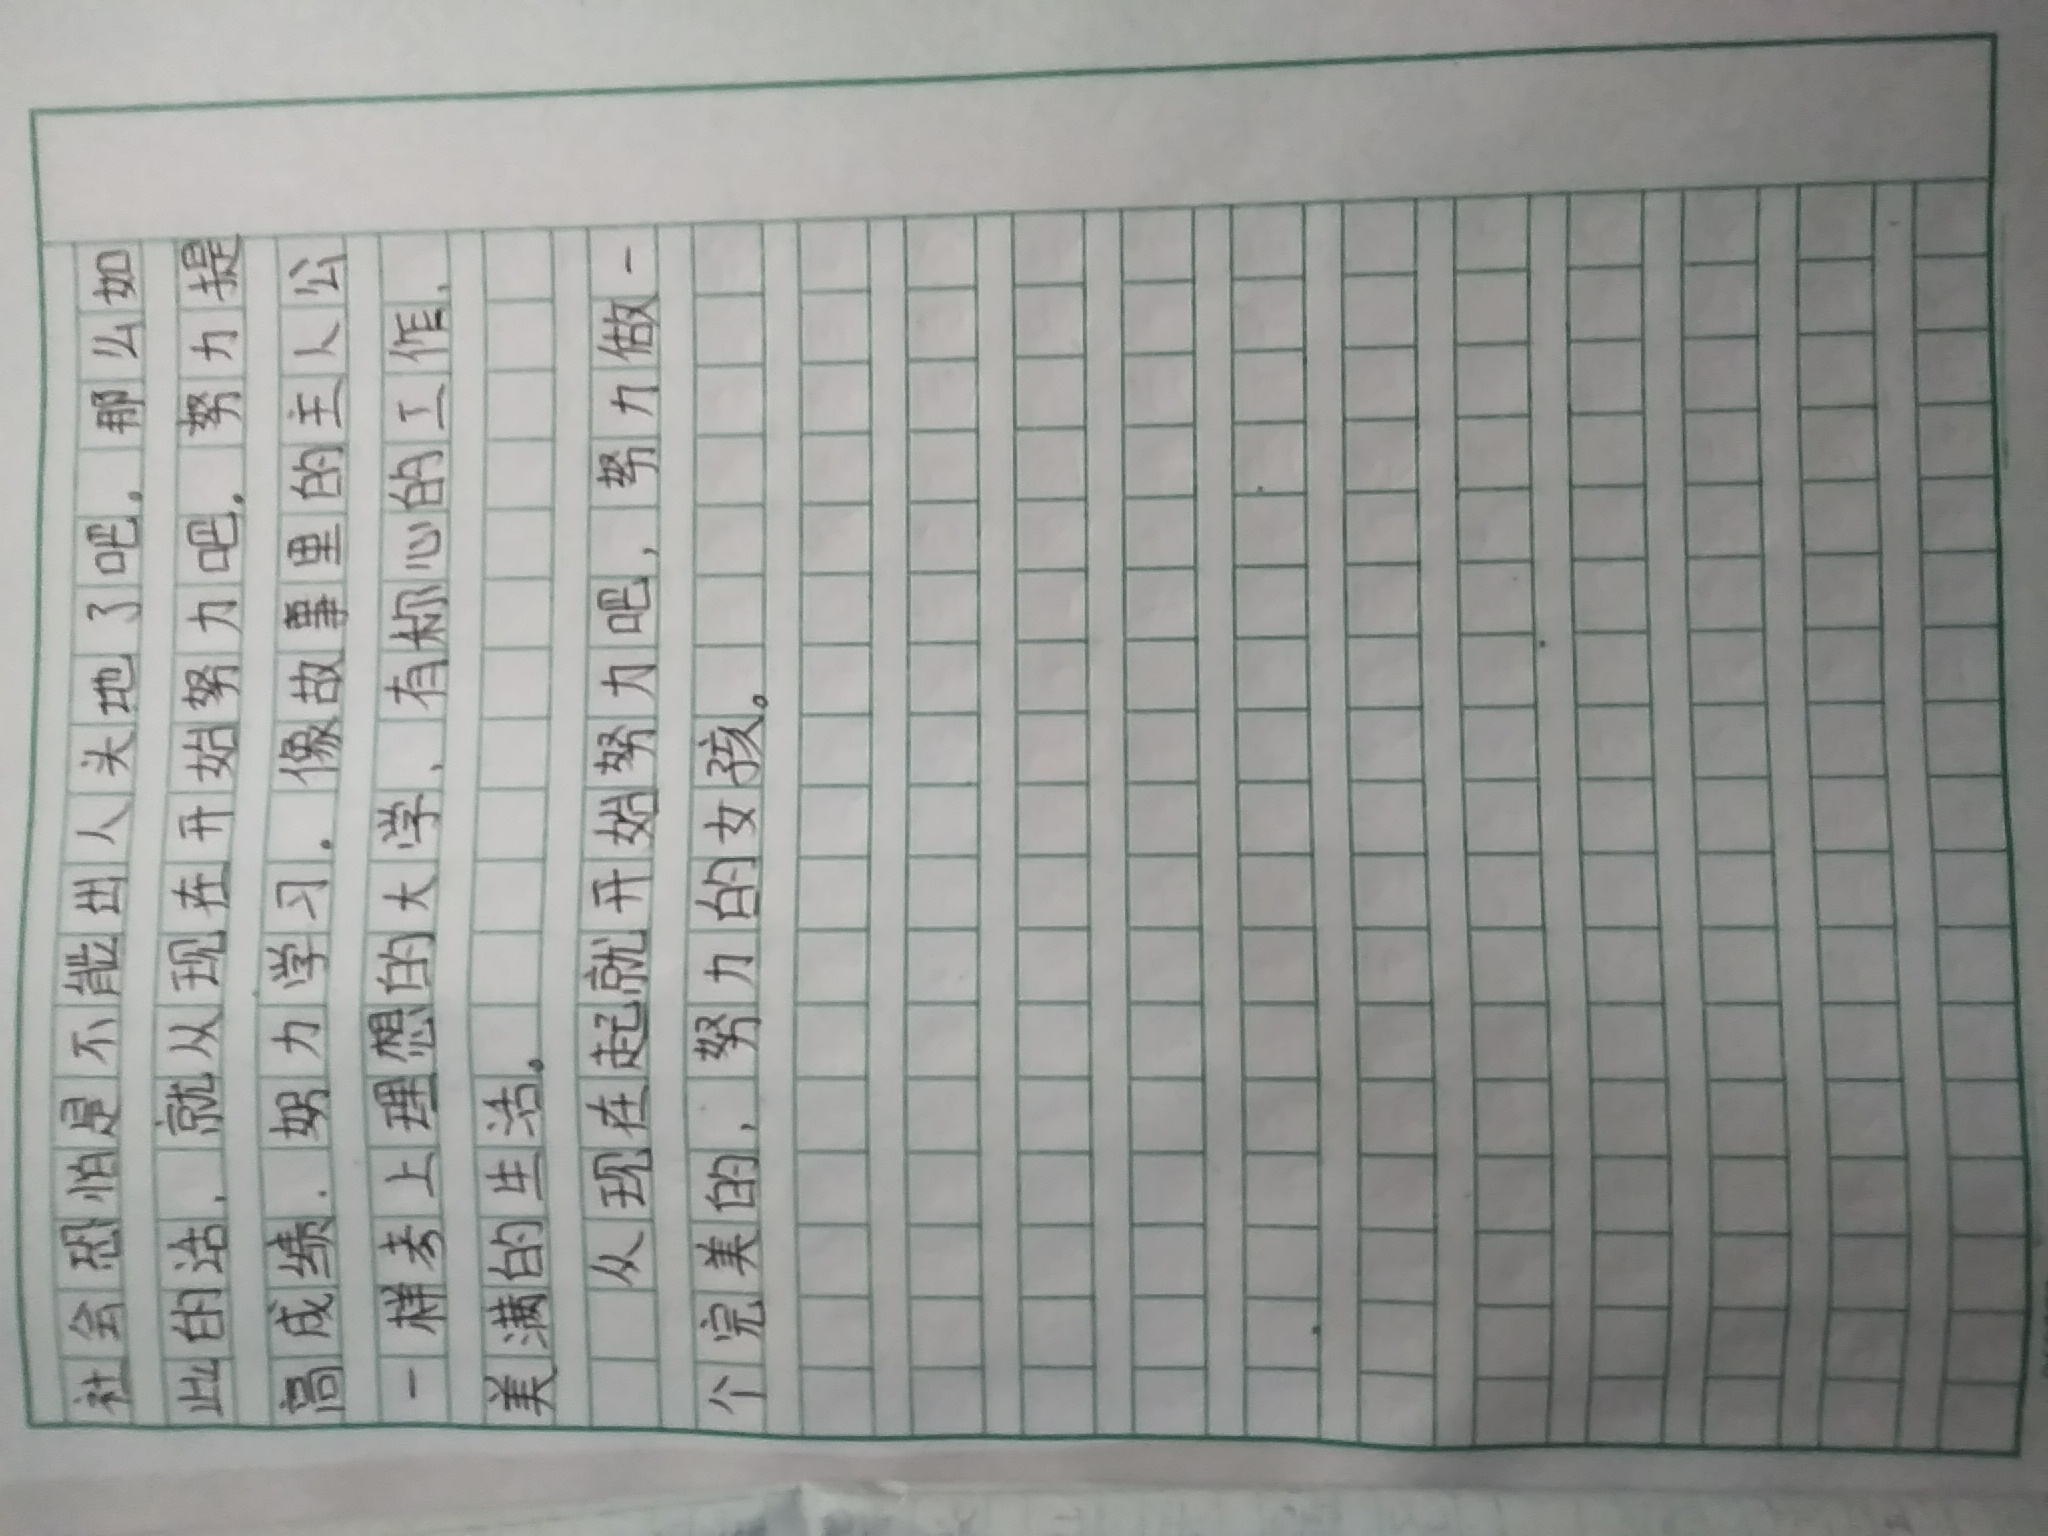 社会恐怕是不能出人头地了吧。那么如
此的话，就从现在开始努力吧。努力提
高成绩．努力学习。像故事里的主人公
一样考上理想的大学、有称心的工作、
美满的生活。
从现在起就开始努力吧，努力做一
个完美的，努力的女孩。